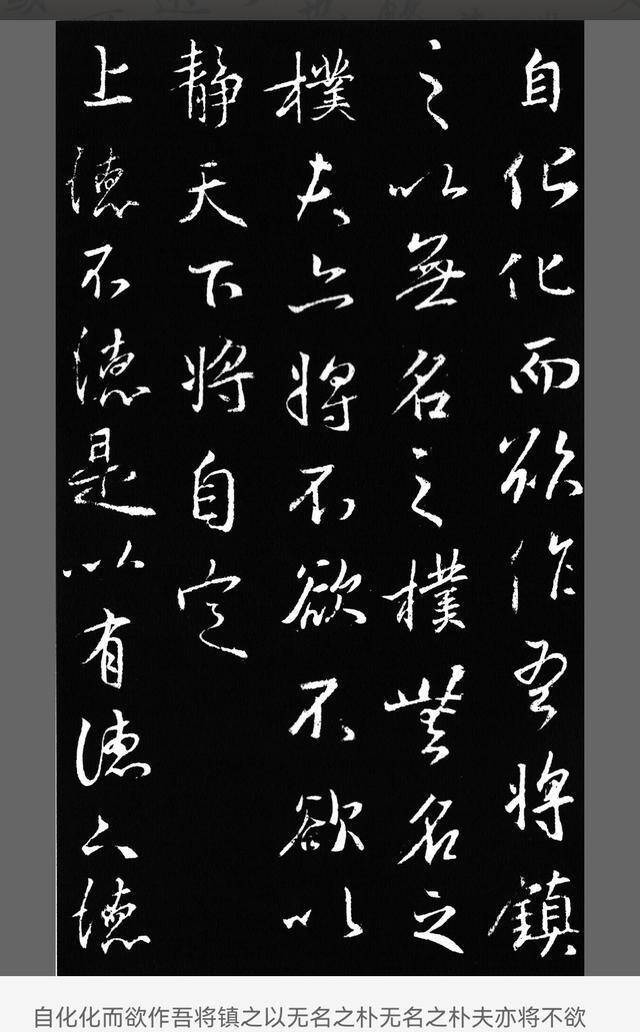 自化化而欲作吾将鎮
之以無名之樸無名之
樸夫亦将不欲不欲以
静天下将自定
上德不德是以有德下德
自化化而欲作吾将镇之以无名之朴无名之朴夫亦将不欲